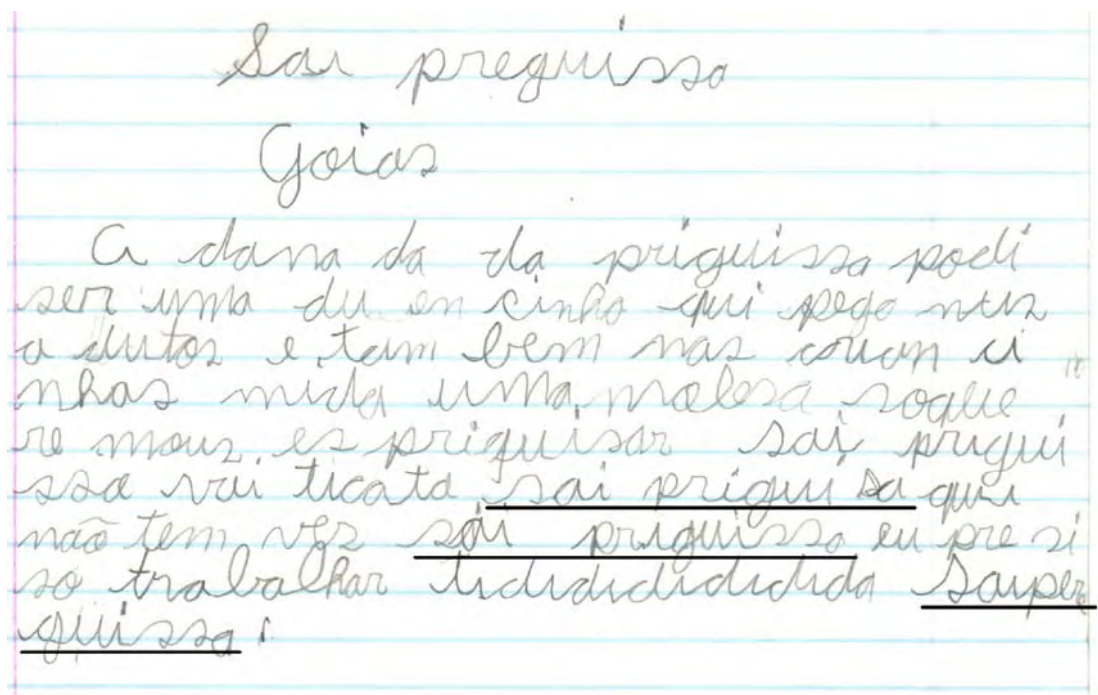 Sai preguissa
Goias
A dana da da priguissa podi
ser uma du en cinha qui pega nus
a dutos e tam bem nas
nhas mida uma molesa soque
re mous es priguisar sai prigui
ssa vai ticata sai prigui sa qui
não tem vez sai priguissa eu pre si
so trabalhar tidididididida Saiper
guissa.